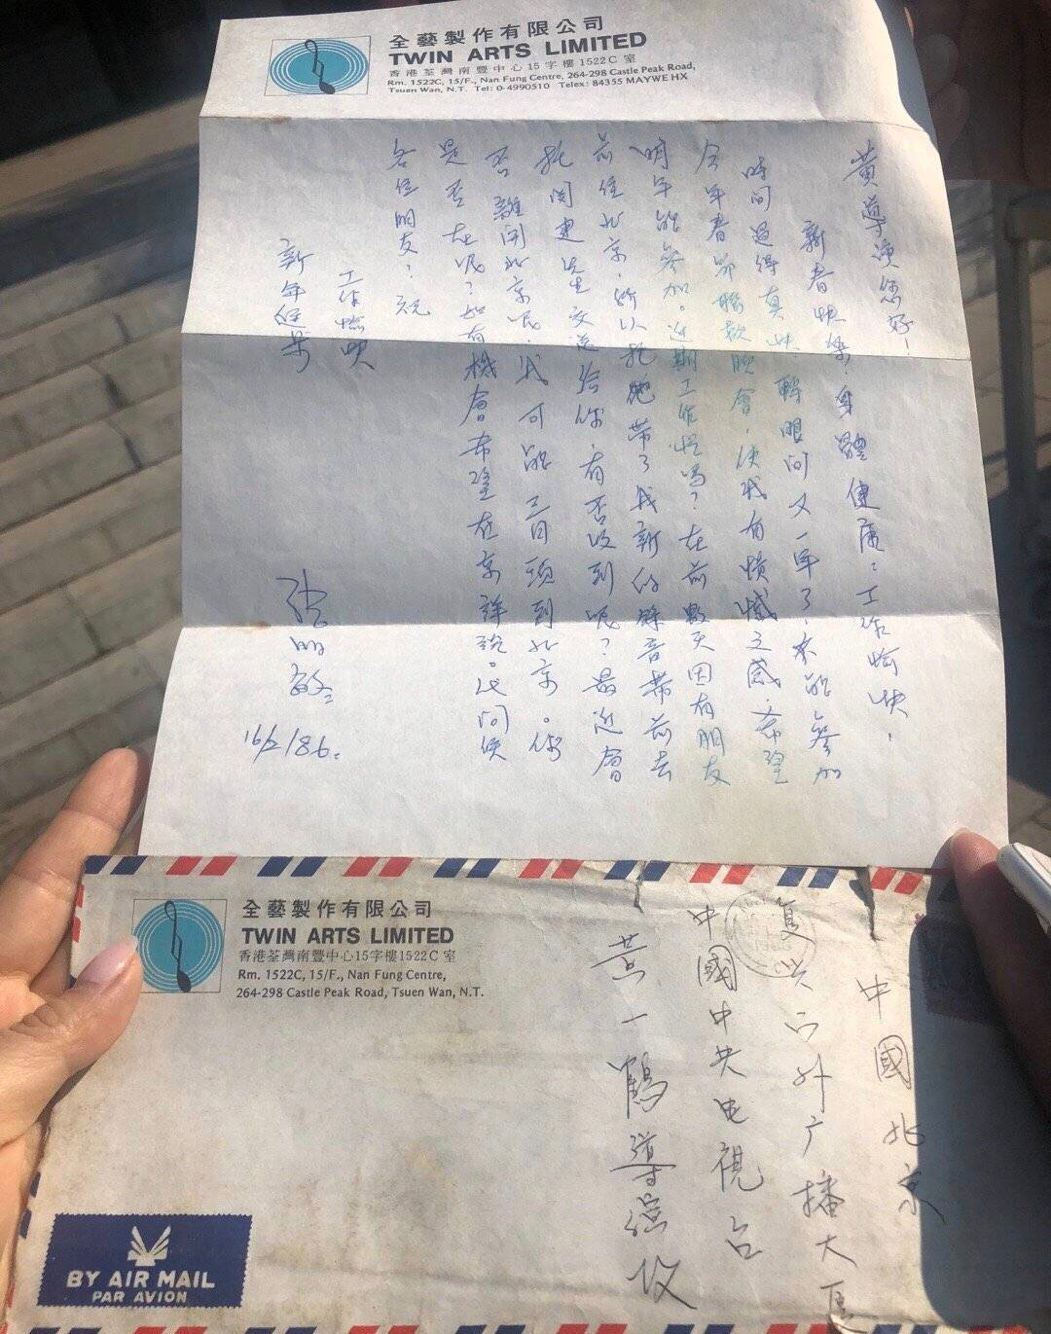 全藝製作有限公司
TWIN ARTS LIMITED
香港荃灣南豐中心15字樓1522C室
Rm. 1522C, 15/F., Nan Fung Centre, 264-298 Castle Peak Road,
Tsuen Wan, N.T. Tel: 0-4990510 Telex: 84355 MAYWE HX
黄導演您好！
新春快樂，身體健康；工作愉快，
時间過得真快，轉眼间又一年了，未能參加
今年春节聯歡晚會，使我有憤憾之感，希望
明年能參加。近期工作忙嗎？在前數天因有朋友
前往北京，所以托他带了我新的錄音帶前去
托阎建生交送给你，有否收到呢？最近會
否離開北京呢，我可能三月頭到北京。你
是否在呢？如有機會希望在京詳谈。代问侯
各位朋友？祝
工作愉快
新年進步
张明敏
16/2/86.
全藝製作有限公司
TWIN ARTS LIMITED
香港荃灣南豐中心15字樓1522C室
Rm. 1522C, 15/F., Nan Fung Centre,
264-298 Castle Peak Road, Tsuen Wan, N.T.
中國北京
复兴门外广播大厦
中國中央电視台
黄一鶴導演收
BY AIR MAIL
PAR AVION